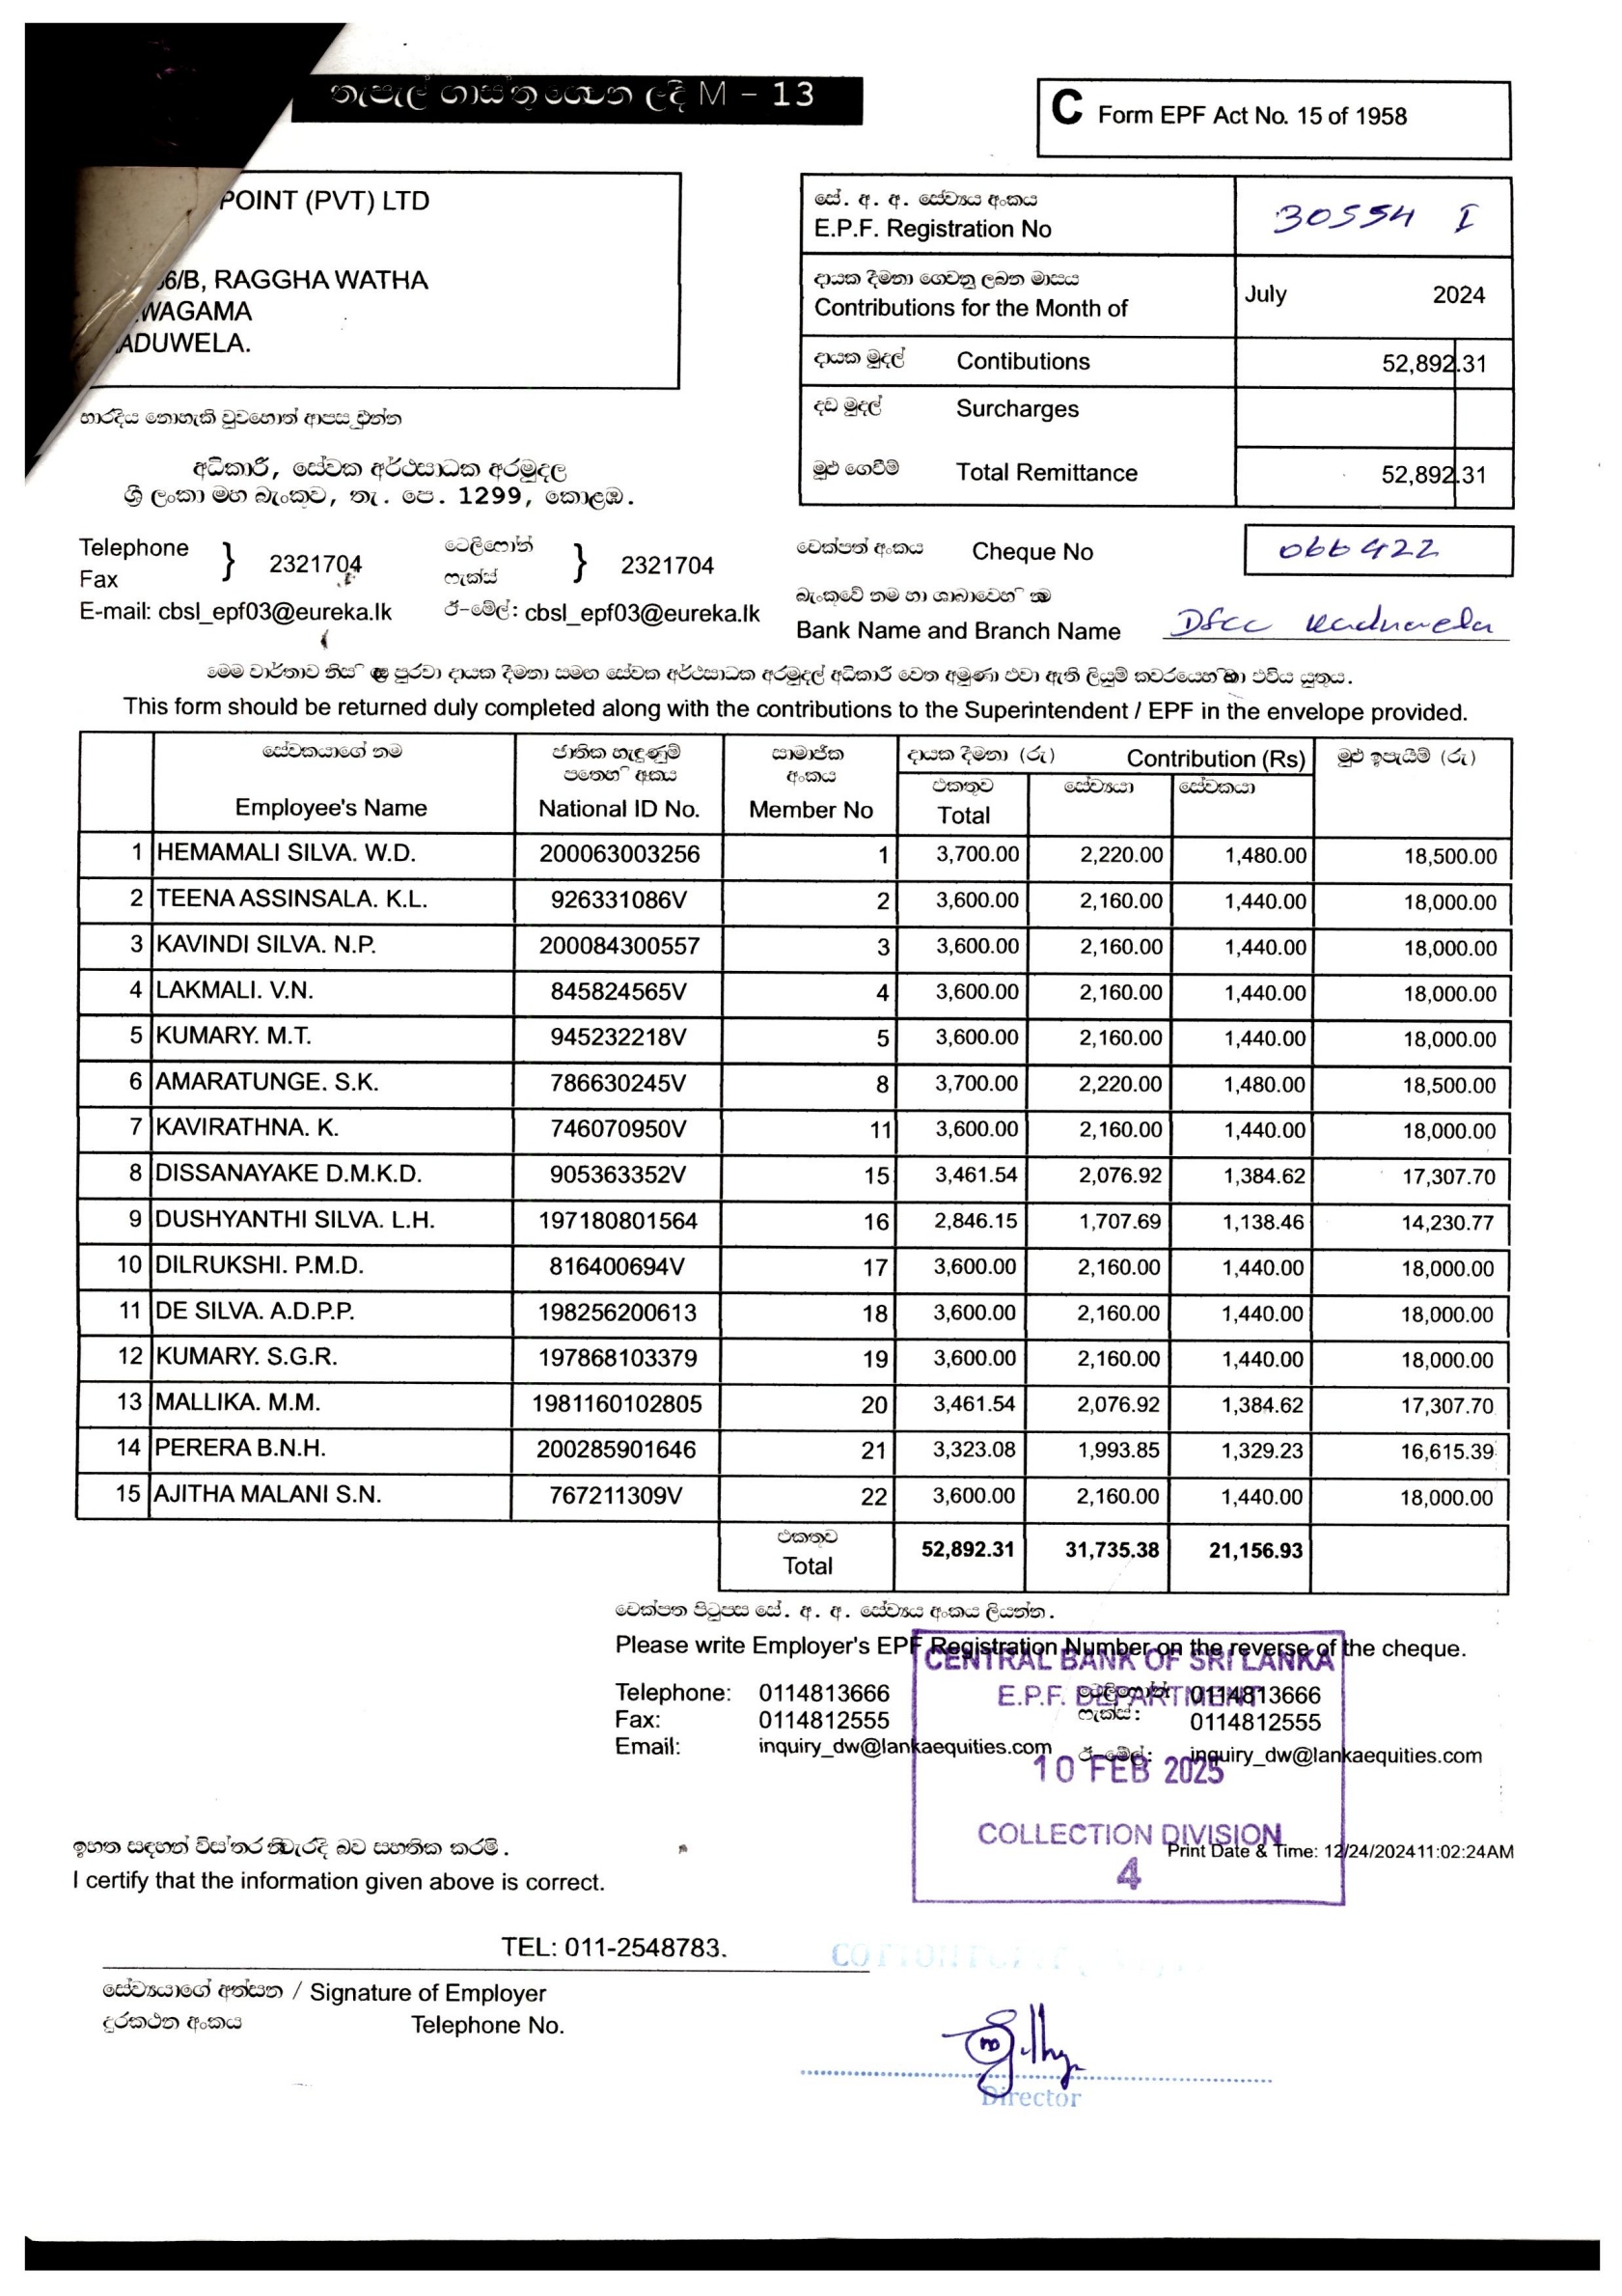 තැපැල් ගාස්තු ගෙවන ලදි M - 13
C Form EPF Act No. 15 of 1958
POINT (PVT) LTD
6/B, RAGGHA WATHA
WAGAMA
ADUWELA.
සේ. අ. අ. සේව්‍යය අංකය
E.P.F. Registration No 30554 I
දායක දීමනා ගෙවනු ලබන මාසය
Contributions for the Month of July 2024
දායක මුදල් Contibutions 52,892.31
දඩ මුදල් Surcharges
මුළු ගෙවීම් Total Remittance 52,892.31
භාරදිය නොහැකි වුවහොත් ආපසු එන්න
අධිකාරී, සේවක අර්ථසාධක අරමුදල
ශ්‍රී ලංකා මහ බැංකුව, තැ. පෙ. 1299, කොළඹ.
Telephone } 2321704 ටෙලිෆෝන් } 2321704
Fax ෆැක්ස්
E-mail: cbsl_epf03@eureka.lk ඊ-මේල්: cbsl_epf03@eureka.lk
චෙක්පත් අංකය Cheque No 066422
බැංකුවේ නම හා ශාඛාවෙහි නම
Bank Name and Branch Name Dfcc Kaduwela
මෙම වාර්තාව නිසි පුරවා දායක දීමනා සමඟ සේවක අර්ථසාධක අරමුදල් අධිකාරී වෙත අමුණා එවා ඇති ලියුම් කවරයෙහි එවිය යුතුය.
This form should be returned duly completed along with the contributions to the Superintendent / EPF in the envelope provided.
සේවකයාගේ නම ජාතික හැඳුණුම් සාමාජික දායක දීමනා (රු) Contribution (Rs) මුළු ඉපැයීම් (රු)
පතෙහි අංකය අංකය එකතුව සේව්‍යයා සේවකයා
Employee's Name National ID No. Member No Total
1 HEMAMALI SILVA. W.D. 200063003256 1 3,700.00 2,220.00 1,480.00 18,500.00
2 TEENA ASSINSALA. K.L. 926331086V 2 3,600.00 2,160.00 1,440.00 18,000.00
3 KAVINDI SILVA. N.P. 200084300557 3 3,600.00 2,160.00 1,440.00 18,000.00
4 LAKMALI. V.N. 845824565V 4 3,600.00 2,160.00 1,440.00 18,000.00
5 KUMARY. M.T. 945232218V 5 3,600.00 2,160.00 1,440.00 18,000.00
6 AMARATUNGE. S.K. 786630245V 8 3,700.00 2,220.00 1,480.00 18,500.00
7 KAVIRATHNA. K. 746070950V 11 3,600.00 2,160.00 1,440.00 18,000.00
8 DISSANAYAKE D.M.K.D. 905363352V 15 3,461.54 2,076.92 1,384.62 17,307.70
9 DUSHYANTHI SILVA. L.H. 197180801564 16 2,846.15 1,707.69 1,138.46 14,230.77
10 DILRUKSHI. P.M.D. 816400694V 17 3,600.00 2,160.00 1,440.00 18,000.00
11 DE SILVA. A.D.P.P. 198256200613 18 3,600.00 2,160.00 1,440.00 18,000.00
12 KUMARY. S.G.R. 197868103379 19 3,600.00 2,160.00 1,440.00 18,000.00
13 MALLIKA. M.M. 1981160102805 20 3,461.54 2,076.92 1,384.62 17,307.70
14 PERERA B.N.H. 200285901646 21 3,323.08 1,993.85 1,329.23 16,615.39
15 AJITHA MALANI S.N. 767211309V 22 3,600.00 2,160.00 1,440.00 18,000.00
එකතුව
Total 52,892.31 31,735.38 21,156.93
චෙක්පත පිටුපස සේ. අ. අ. සේව්‍යය අංකය ලියන්න.
Please write Employer's EPF Registration Number on the reverse of the cheque.
CENTRAL BANK OF SRI LANKA
E.P.F. DEPARTMENT
10 FEB 2025
COLLECTION DIVISION
4
Telephone: 0114813666 ටෙලිෆෝන්: 0114813666
Fax: 0114812555 ෆැක්ස්: 0114812555
Email: inquiry_dw@lankaequities.com ඊ-මේල්: inquiry_dw@lankaequities.com
Print Date & Time: 12/24/202411:02:24AM
ඉහත සඳහන් විස්තර නිවැරදි බව සහතික කරමි.
I certify that the information given above is correct.
TEL: 011-2548783.
සේව්‍යයාගේ අත්සන / Signature of Employer
දුරකථන අංකය Telephone No.
Director